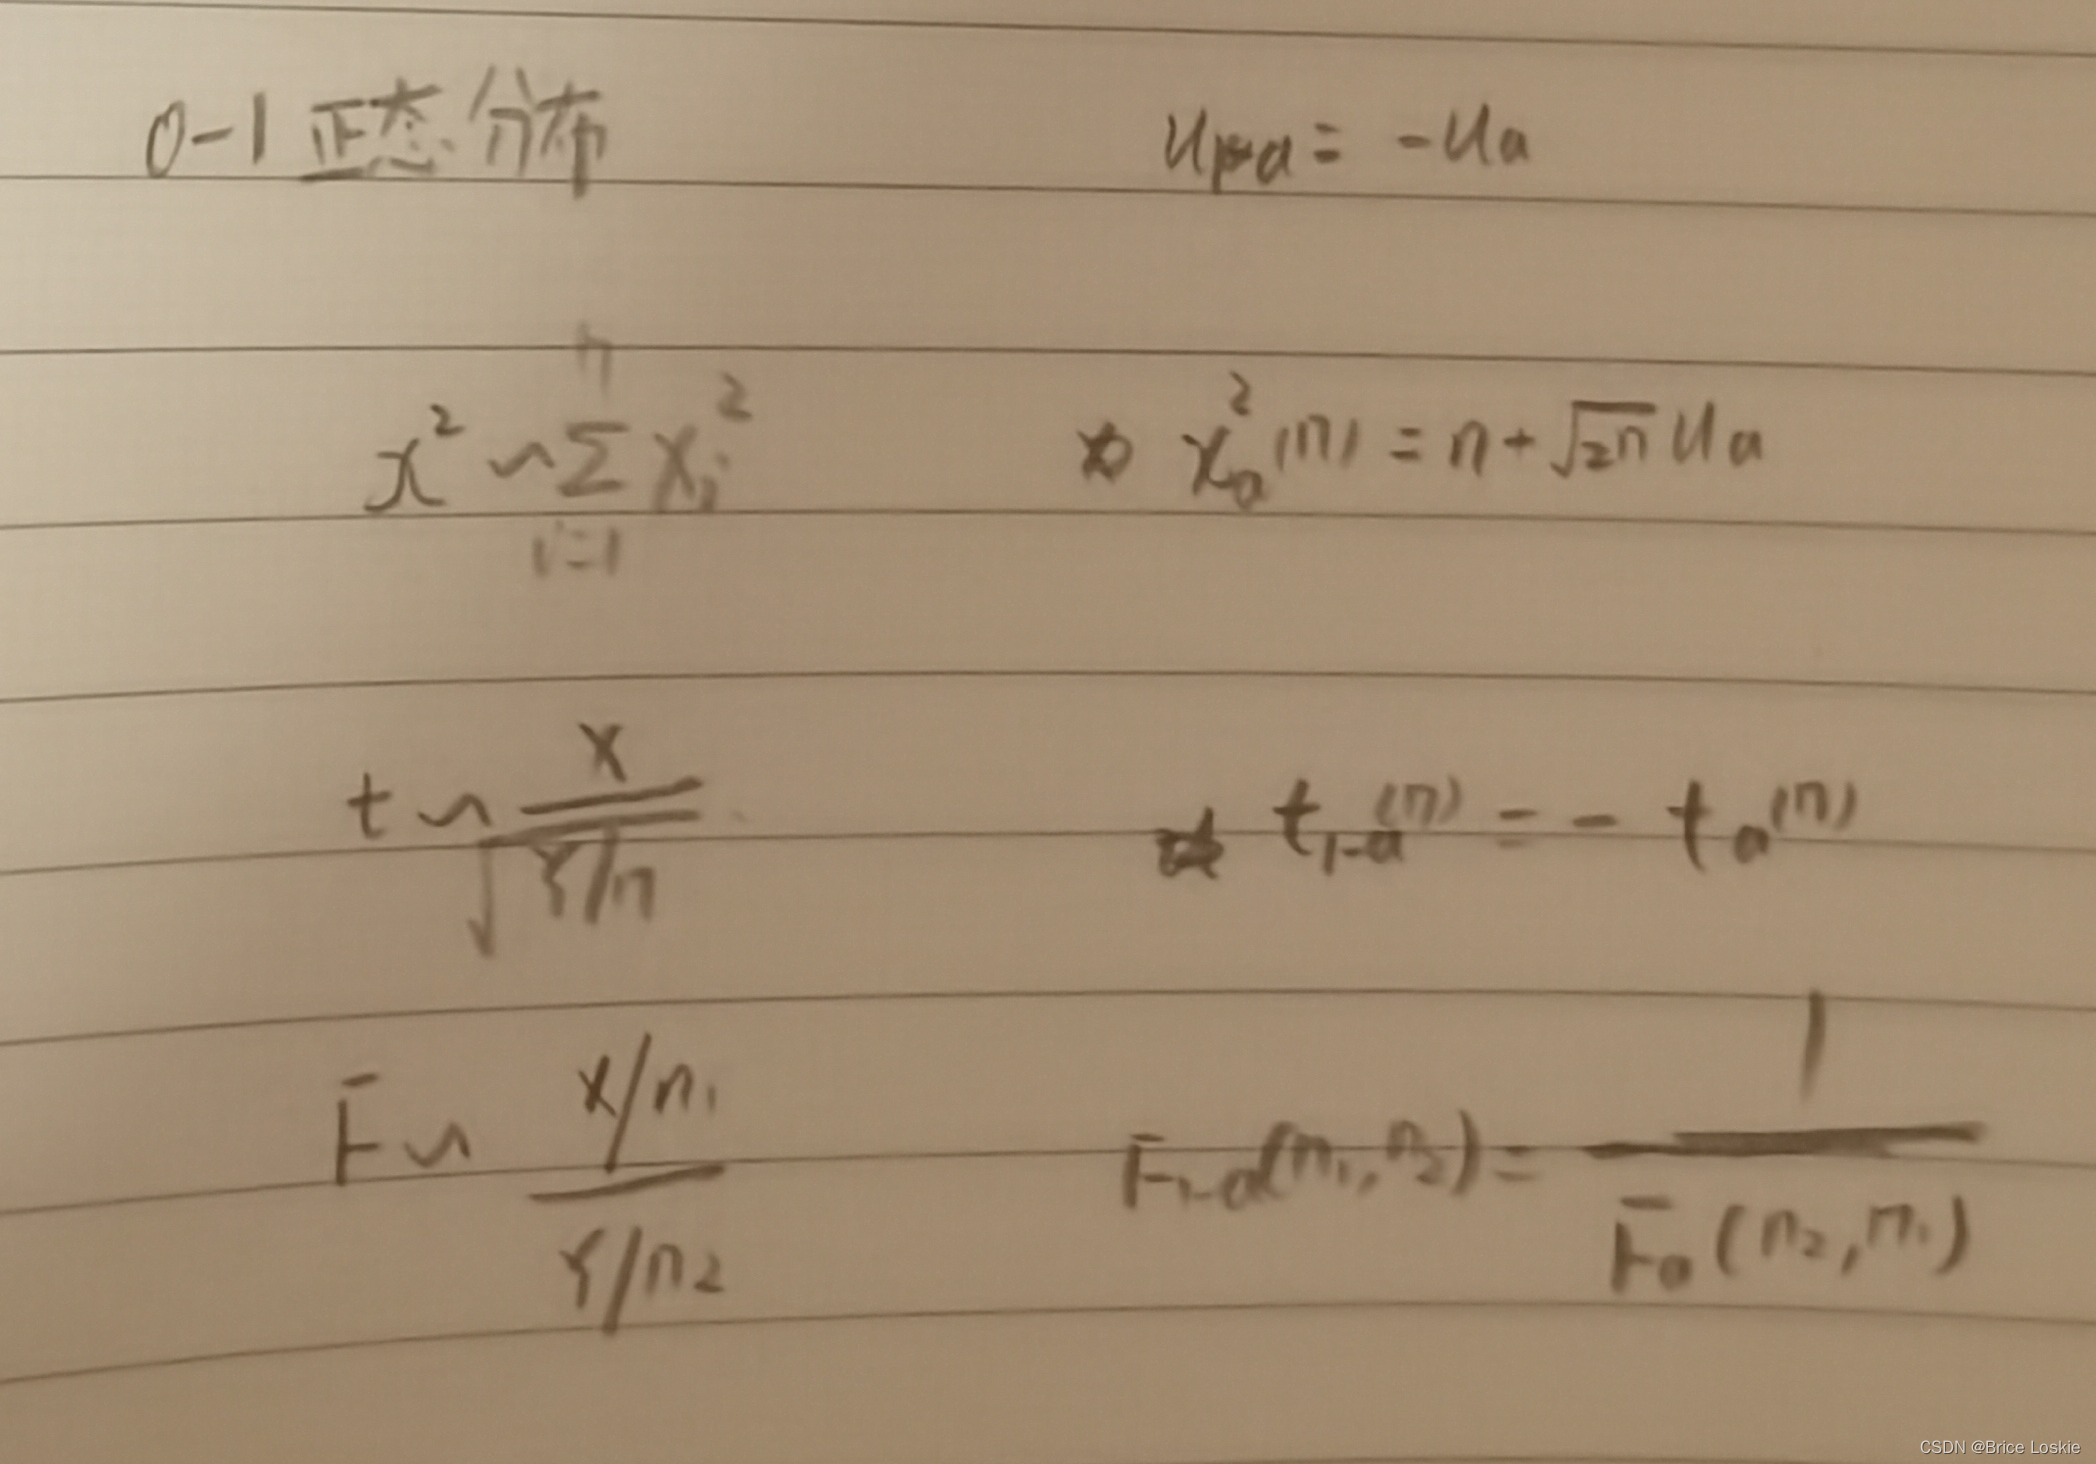 0-1 正态分布 u₁₋ₐ = -uₐ
x² ~ ∑ᵢ₌₁ⁿ Xᵢ² ☆ xₐ²(n) = n + √2n uₐ
t ~ X / √(Y/n) ☆ t₁₋ₐ(n) = - tₐ(n)
F ~ (X/n₁) / (Y/n₂) F₁₋ₐ(n₁, n₂) = 1 / Fₐ(n₂, n₁)
CSDN @Brice Loskie